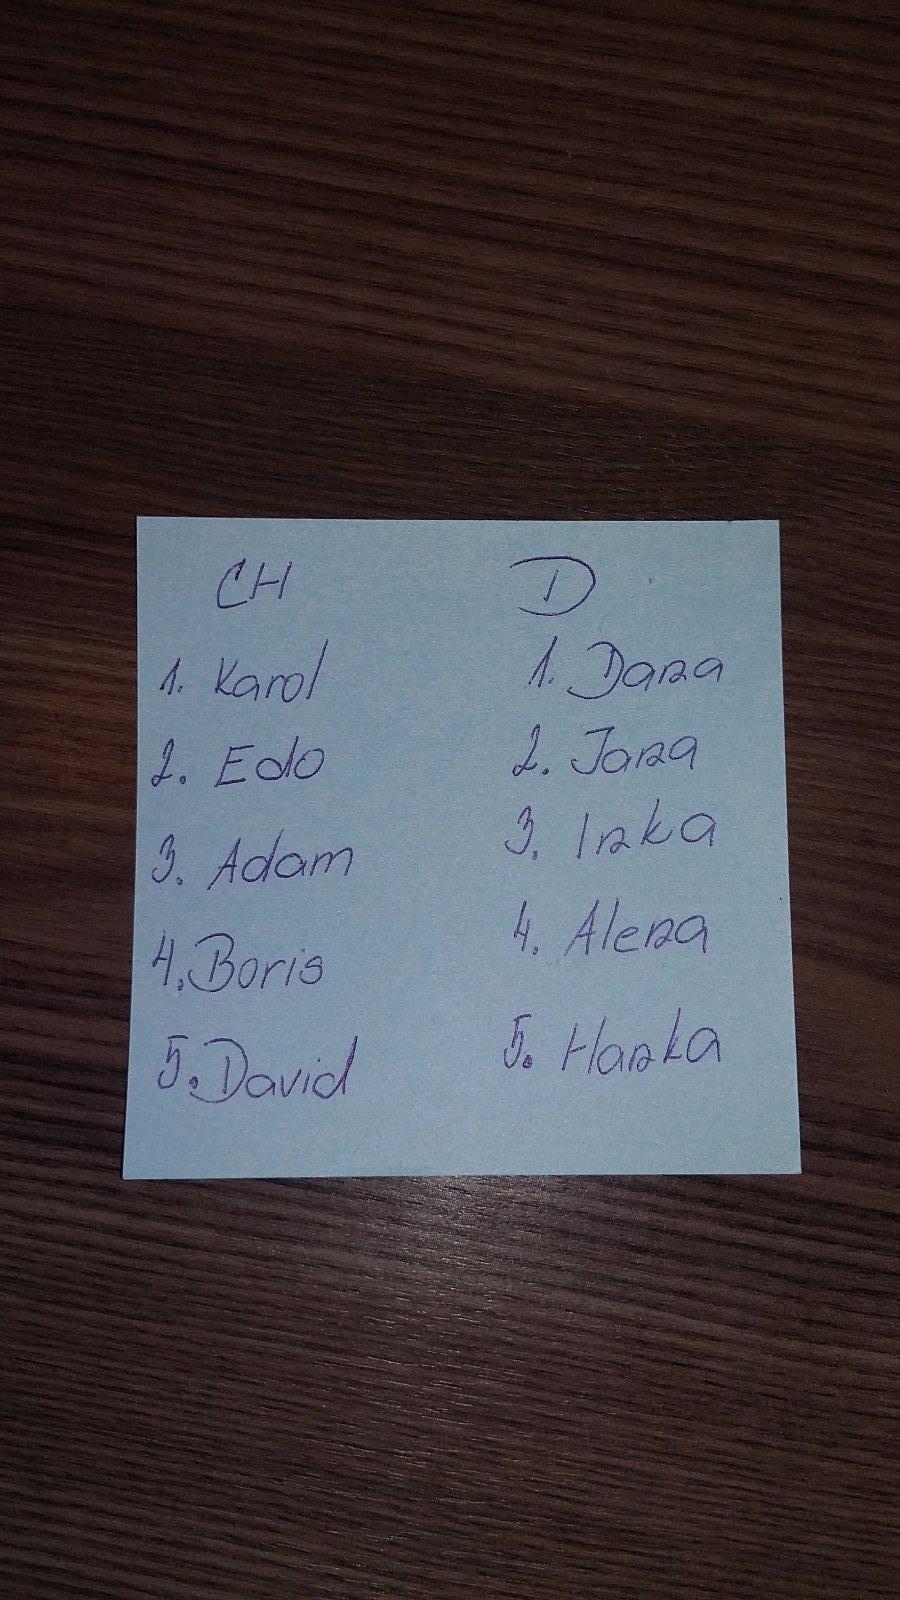 CH D
1. Karol 1. Dana
2. Edo 2. Jana
3. Adam 3. Inka
4. Boris 4. Alena
5. David 5. Hanka